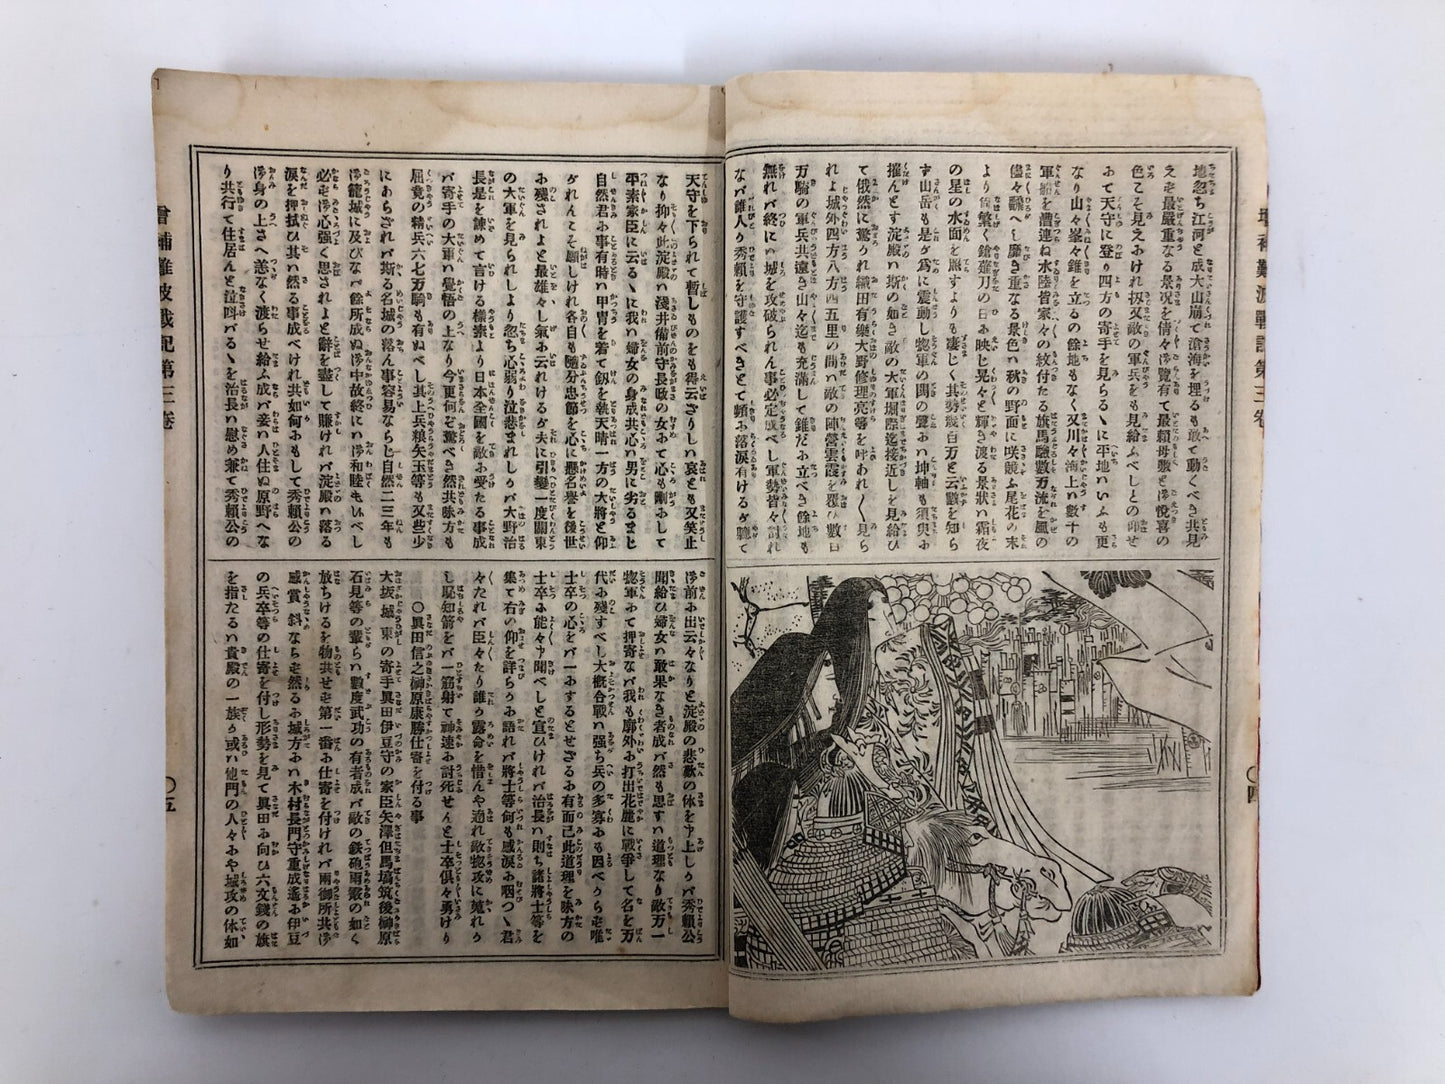 地忽ち江河と成大山崩て滄海を埋るも敢て動くべき共見
えぞ最嚴重なる景況を倩々御覽有て最頼母敷と御悦喜の
色こそ見えふけれ扨又敵の軍兵をも見給ふべしとの仰せ
ふて天守に登り四方の寄手を見らるゝに平地ハいふも更
なり山々峯々錐を立るの餘地もなく又川々海上ハ數十の
軍船を漕連ね水陸皆家々の紋付たる旗馬驗數万流を風の
儘々飜へし靡き重なる景色ハ秋の野面に咲競ふ尾花の末
より尙繁く鎗薙刀の日ふ映と晃々と輝き渡る景狀ハ霜夜
の星の水面を照すよりも凄じく其勢幾百万と云數を知ら
ず山岳も是が爲に震動し惣軍の鬨の聲ふハ坤軸も須臾ふ
摧んとす淀殿ハ斯の如き敵の大軍堀際迄接近しを見給ひ
て俄然に驚られ織田有樂大野修理亮等を呼あれ〱見ら
れよ城外四方八方四五里の間ハ敵の陣營雲霞を覆ひ數日
万騎の軍兵共遠き山々迄も充滿して錐だふ立べき餘地も
無れバ終にハ城を攻破られん事必定成べし軍勢皆々討れ
なバ誰人り秀頼を守護すべきとて頻ふ落淚有けるが聽て
難波戰記第三卷
〇四
天守を下られて暫しものをも得云ざりしハ哀とも又笑止
なり抑々此淀殿ハ淺井備前守長政の女ふて心も剛ふして
平素家臣に云るゝに我ハ婦女の身成共心ハ男に劣るまじ
自然君ふ事有時ハ甲冑を着て釼を執天晴一方の大將と仰
がれんこそ願しけれ各自も隨分忠節を心に懸名譽を後世
ふ殘されよと最雄々し氣ふ云れけるが夫に引變一度關東
の大軍を見られしより忽ち心弱り泣悲まれしかバ大野治
長是を諫めて言ける樣素より日本全國を敵ふ受たる事成
バ寄手の大軍ハ覺悟の上なり今更何ぞ驚べき然共味方も
屈竟の精兵六七万騎も有ぬべし其上兵粮矢玉等も又些少
にあらざれバ斯る名城の落ん事容易ならじ自然二三年も
御籠城に及びなバ餘所成ぬ御中故終にハ御和睦もいべし
必ぞ御心强く思されよと辭を盡して賺けれバ淀殿ハ落る
淚を押拭ひ其ハ然る事成べけれ共如何ふもして秀頼公の
御身の上さへ恙なく渡らせ給ふ成バ妾ハ人住ぬ原野へな
り共行て住居んと泣叫バるゝを治長ハ慰め兼て秀頼公の
御前ふ出云々なりと淀殿の悲歎の体を申上しかバ秀頼公
聞給ひ婦女ハ敢果なき者成バ然も思すハ道理なり敵万一
惣軍ふて押寄なバ我も廓外ふ打出花麗に戰爭して名を万
代ふ殘すべし大概合戰ハ强ち兵の多寡ふも因べからぞ唯
士卒の心をバ一ふするとせざるふ有而已此道理を味方の
士卒ふ能々申聞べしと宣ひけれバ治長ハ則ち諸將士等を
集て右の仰を詳らかふ語れバ將士等何も感淚ふ咽つゝ君
々たれバ臣々たり誰か露命を惜んや適れ敵惣攻に蒐れか
し耻知箭をバ一筋射て神速ふ討死せんと士卒俱々勇けり
〇眞田信之榊原康勝仕寄を付る事
大坂城東の寄手眞田伊豆守の家臣矢澤但馬塙筑後榊原
石見等の輩らハ數度武功の有者成バ敵の鉄砲雨霰の如く
放ちけるを物共せぞ第一番ふ仕寄を付けれバ兩御所共御
感賞斜ならぞ然るふ城方ふハ木村長門守重成遙ふ伊豆
の兵卒等の仕寄を付し形勢を見て眞田ふ向ひ六文錢の旗
を指たるハ貴殿の一族か或ハ他門の人々ふや城攻の休如
増補難波戰記第三卷
〇五